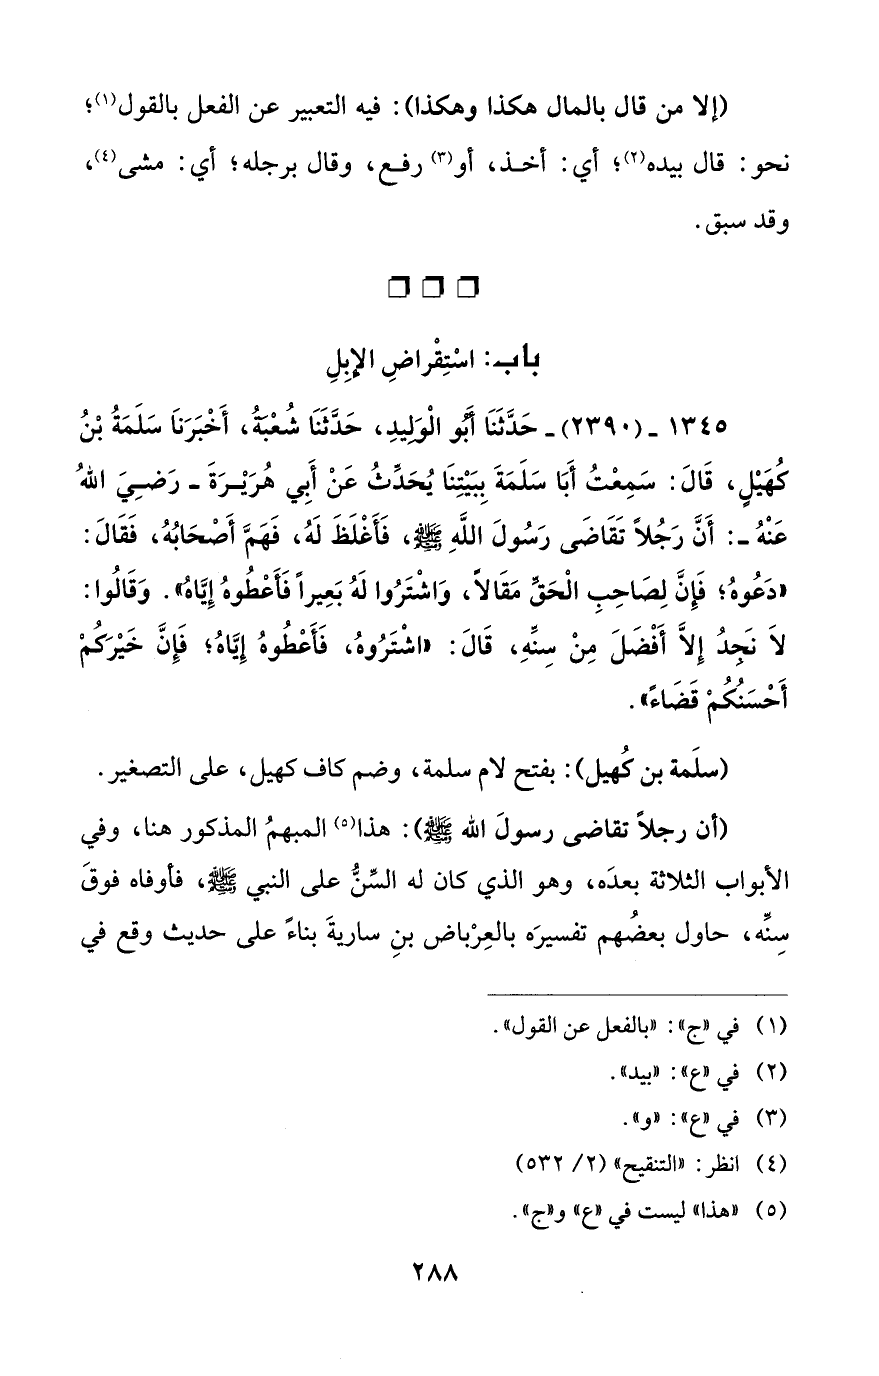 (إلا من قال بالمال هكذا وهكذا): فيه التعبير عن الفعل بالقول(١)؛
نحو: قال بيده(٢)؛ أي: أخذ، أو(٣) رفع، وقال برجله؛ أي: مشى(٤)،
وقد سبق.
❒ ❒ ❒
باب: اسْتِقْراضِ الإِبِلِ
١٣٤٥ ـ (٢٣٩٠) ـ حَدَّثَنَا أَبُو الْوَلِيدِ، حَدَّثَنَا شُعْبَةُ، أَخْبَرَنَا سَلَمَةُ بْنُ
كُهَيْلٍ، قَالَ: سَمِعْتُ أَبَا سَلَمَةَ بِبَيْتِنَا يُحَدِّثُ عَنْ أَبِي هُرَيْرَةَ ـ رَضِيَ اللهُ
عَنْهُ ـ: أَنَّ رَجُلاً تَقَاضَى رَسُولَ اللَّهِ ﷺ، فَأَغْلَظَ لَهُ، فَهَمَّ أَصْحَابُهُ، فَقَالَ:
«دَعُوهُ؛ فَإِنَّ لِصَاحِبِ الْحَقِّ مَقَالاً، وَاشْتَرُوا لَهُ بَعِيراً فَأَعْطُوهُ إِيَّاهُ». وَقَالُوا:
لاَ نَجِدُ إِلاَّ أَفْضَلَ مِنْ سِنِّهِ، قَالَ: «اشْتَرُوهُ، فَأَعْطُوهُ إِيَّاهُ؛ فَإِنَّ خَيْرَكُمْ
أَحْسَنُكُمْ قَضَاءً».
(سلَمة بن كُهيل): بفتح لام سلمة، وضم كاف كهيل، على التصغير.
(أن رجلاً تقاضى رسولَ الله ﷺ): هذا(٥) المبهمُ المذكور هنا، وفي
الأبواب الثلاثة بعدَه، وهو الذي كان له السِّنُّ على النبي ﷺ، فأوفاه فوقَ
سِنِّه، حاول بعضُهم تفسيرَه بالعِرْباض بنِ ساريةَ بناءً على حديث وقع في
(١) في «ج»: «بالفعل عن القول».
(٢) في «ع»: «بيد».
(٣) في «ع»: «و».
(٤) انظر: «التنقيح» (٢/ ٥٣٢)
(٥) «هذا» ليست في «ع» و«ج».
٢٨٨